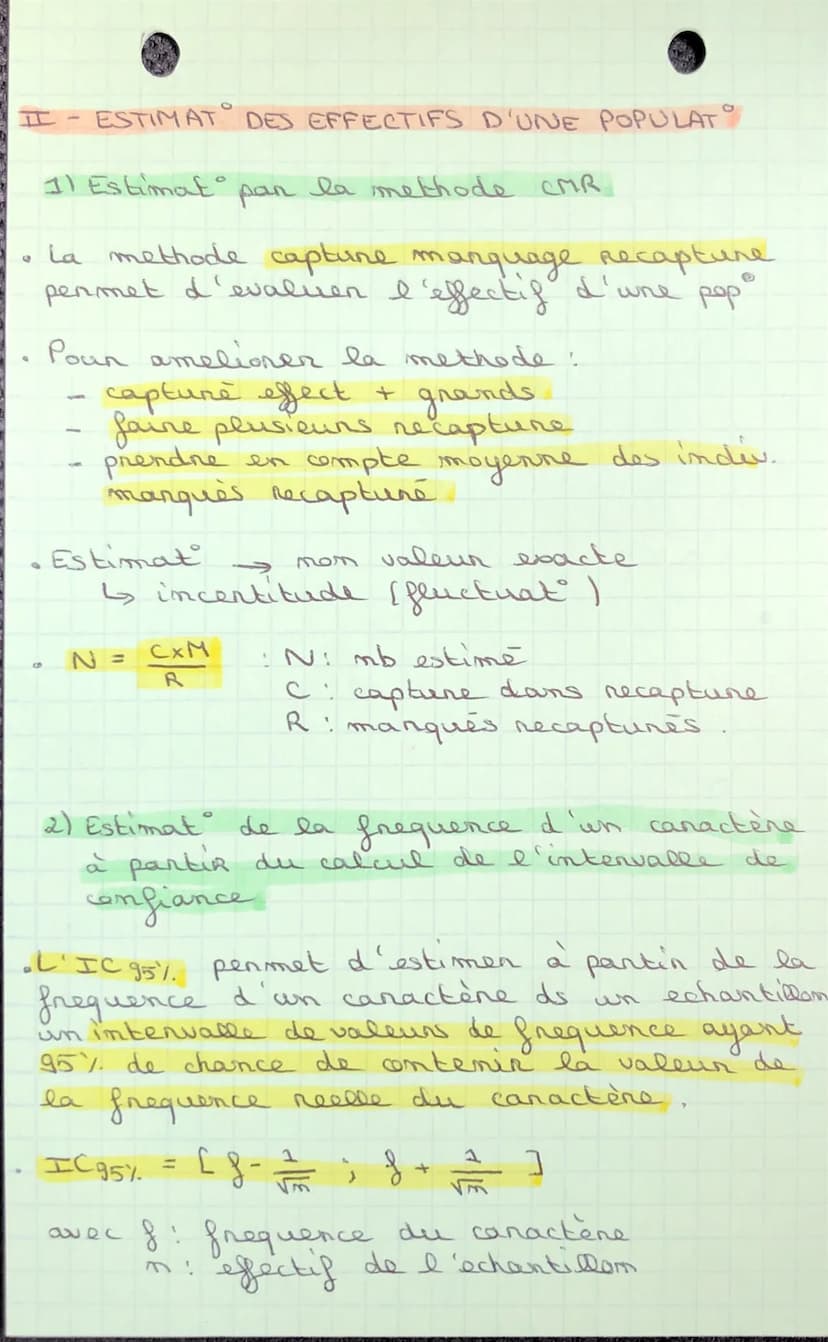 II - ESTIMAT° DES EFFECTIFS D'UNE POPULAT°
1) Estimat° par la methode CMR
• La methode capture marquage recapture
permet d'evaluer l'effectif d'une pop°
• Pour ameliorer la methode :
- capturé effect + grands
- faire plusieurs recapture
- prendre en compte moyenne des indiv.
marqués recapturé
• Estimat° → non valeur exacte
↳ incertitude (fluctuat°)
• N = C×M / R : N : nb estimé
C : capture dans recapture
R : marqués recapturés.
2) Estimat° de la frequence d'un caractère
à partir du calcul de l'intervalle de
confiance
• L'IC 95% permet d'estimer à partir de la
frequence d'un caractère ds un echantillon
un intervalle de valeurs de frequence ayant
95% de chance de contenir la valeur de
la frequence reelle du caractère.
• IC95% = [ f - 1/√n ; f + 1/√n ]
avec f : frequence du caractère
n : effectif de l'echantillon